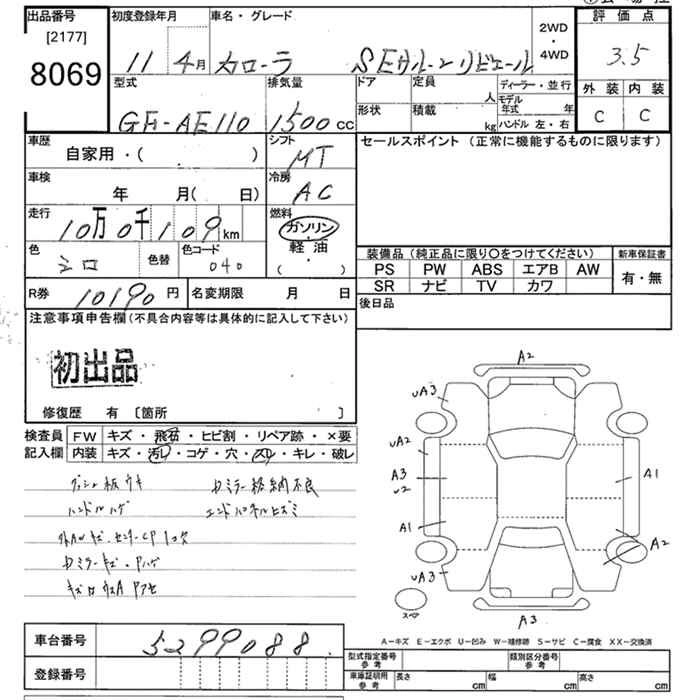 出品番号
[2177]
8069
初度登録年月
11 4月
車名・グレード
カローラ SEサルーン リビエール
2WD
・
4WD
評価点
3.5
外装 内装
C C
型式
GF-AE110
排気量
1500cc
ドア
定員
人
形状
積載
kg
ディーラー・並行
モデル年式 年
ハンドル 左・右
車歴
自家用・( )
シフト
MT
車検
年 月( 日)
冷房
AC
走行
10万0千109km
燃料
ガソリン
軽油
( ・ )
色
シロ
色替
色コード
040
R券
10190円
名変期限 月 日
セールスポイント (正常に機能するものに限ります)
装備品 (純正品に限り〇をつけてください)
PS PW ABS エアB AW
SR ナビ TV カワ
新車保証書
有・無
後日品
注意事項申告欄(不具合内容等は具体的に記入して下さい)
初出品
修復歴 有 〔箇所 〕
検査員
記入欄
FW キズ・飛石・ヒビ割・リペア跡・×要
内装 キズ・汚レ・コゲ・穴・スレ・キレ・破レ
ダッシュ板ウキ
カミラー格納不良
ハンドルハゲ
エンドパネルヒズミ
カミラーキズ・Pハゲ
A2
UA3
UA2
A3
U2
A1
A1
A2
UA3
A3
スペア
A-キズ E-エクボ U-凹み W-補修跡 S-サビ C-腐食 XX-交換済
車台番号
5299088
登録番号
型式指定番号
参考
類別区分番号
参考
車庫証明用
参考
長さ cm
幅 cm
高さ cm